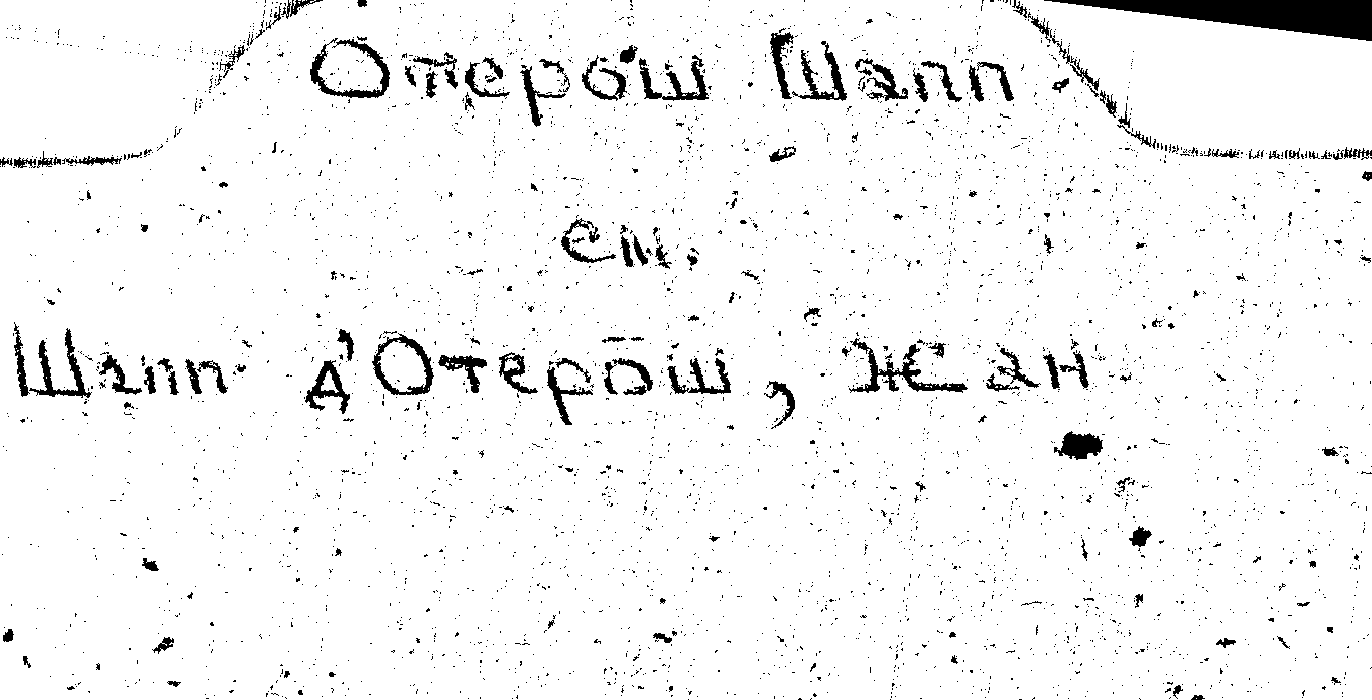 Отерош Шапп
см.
Шапп д'Отерош, Жан